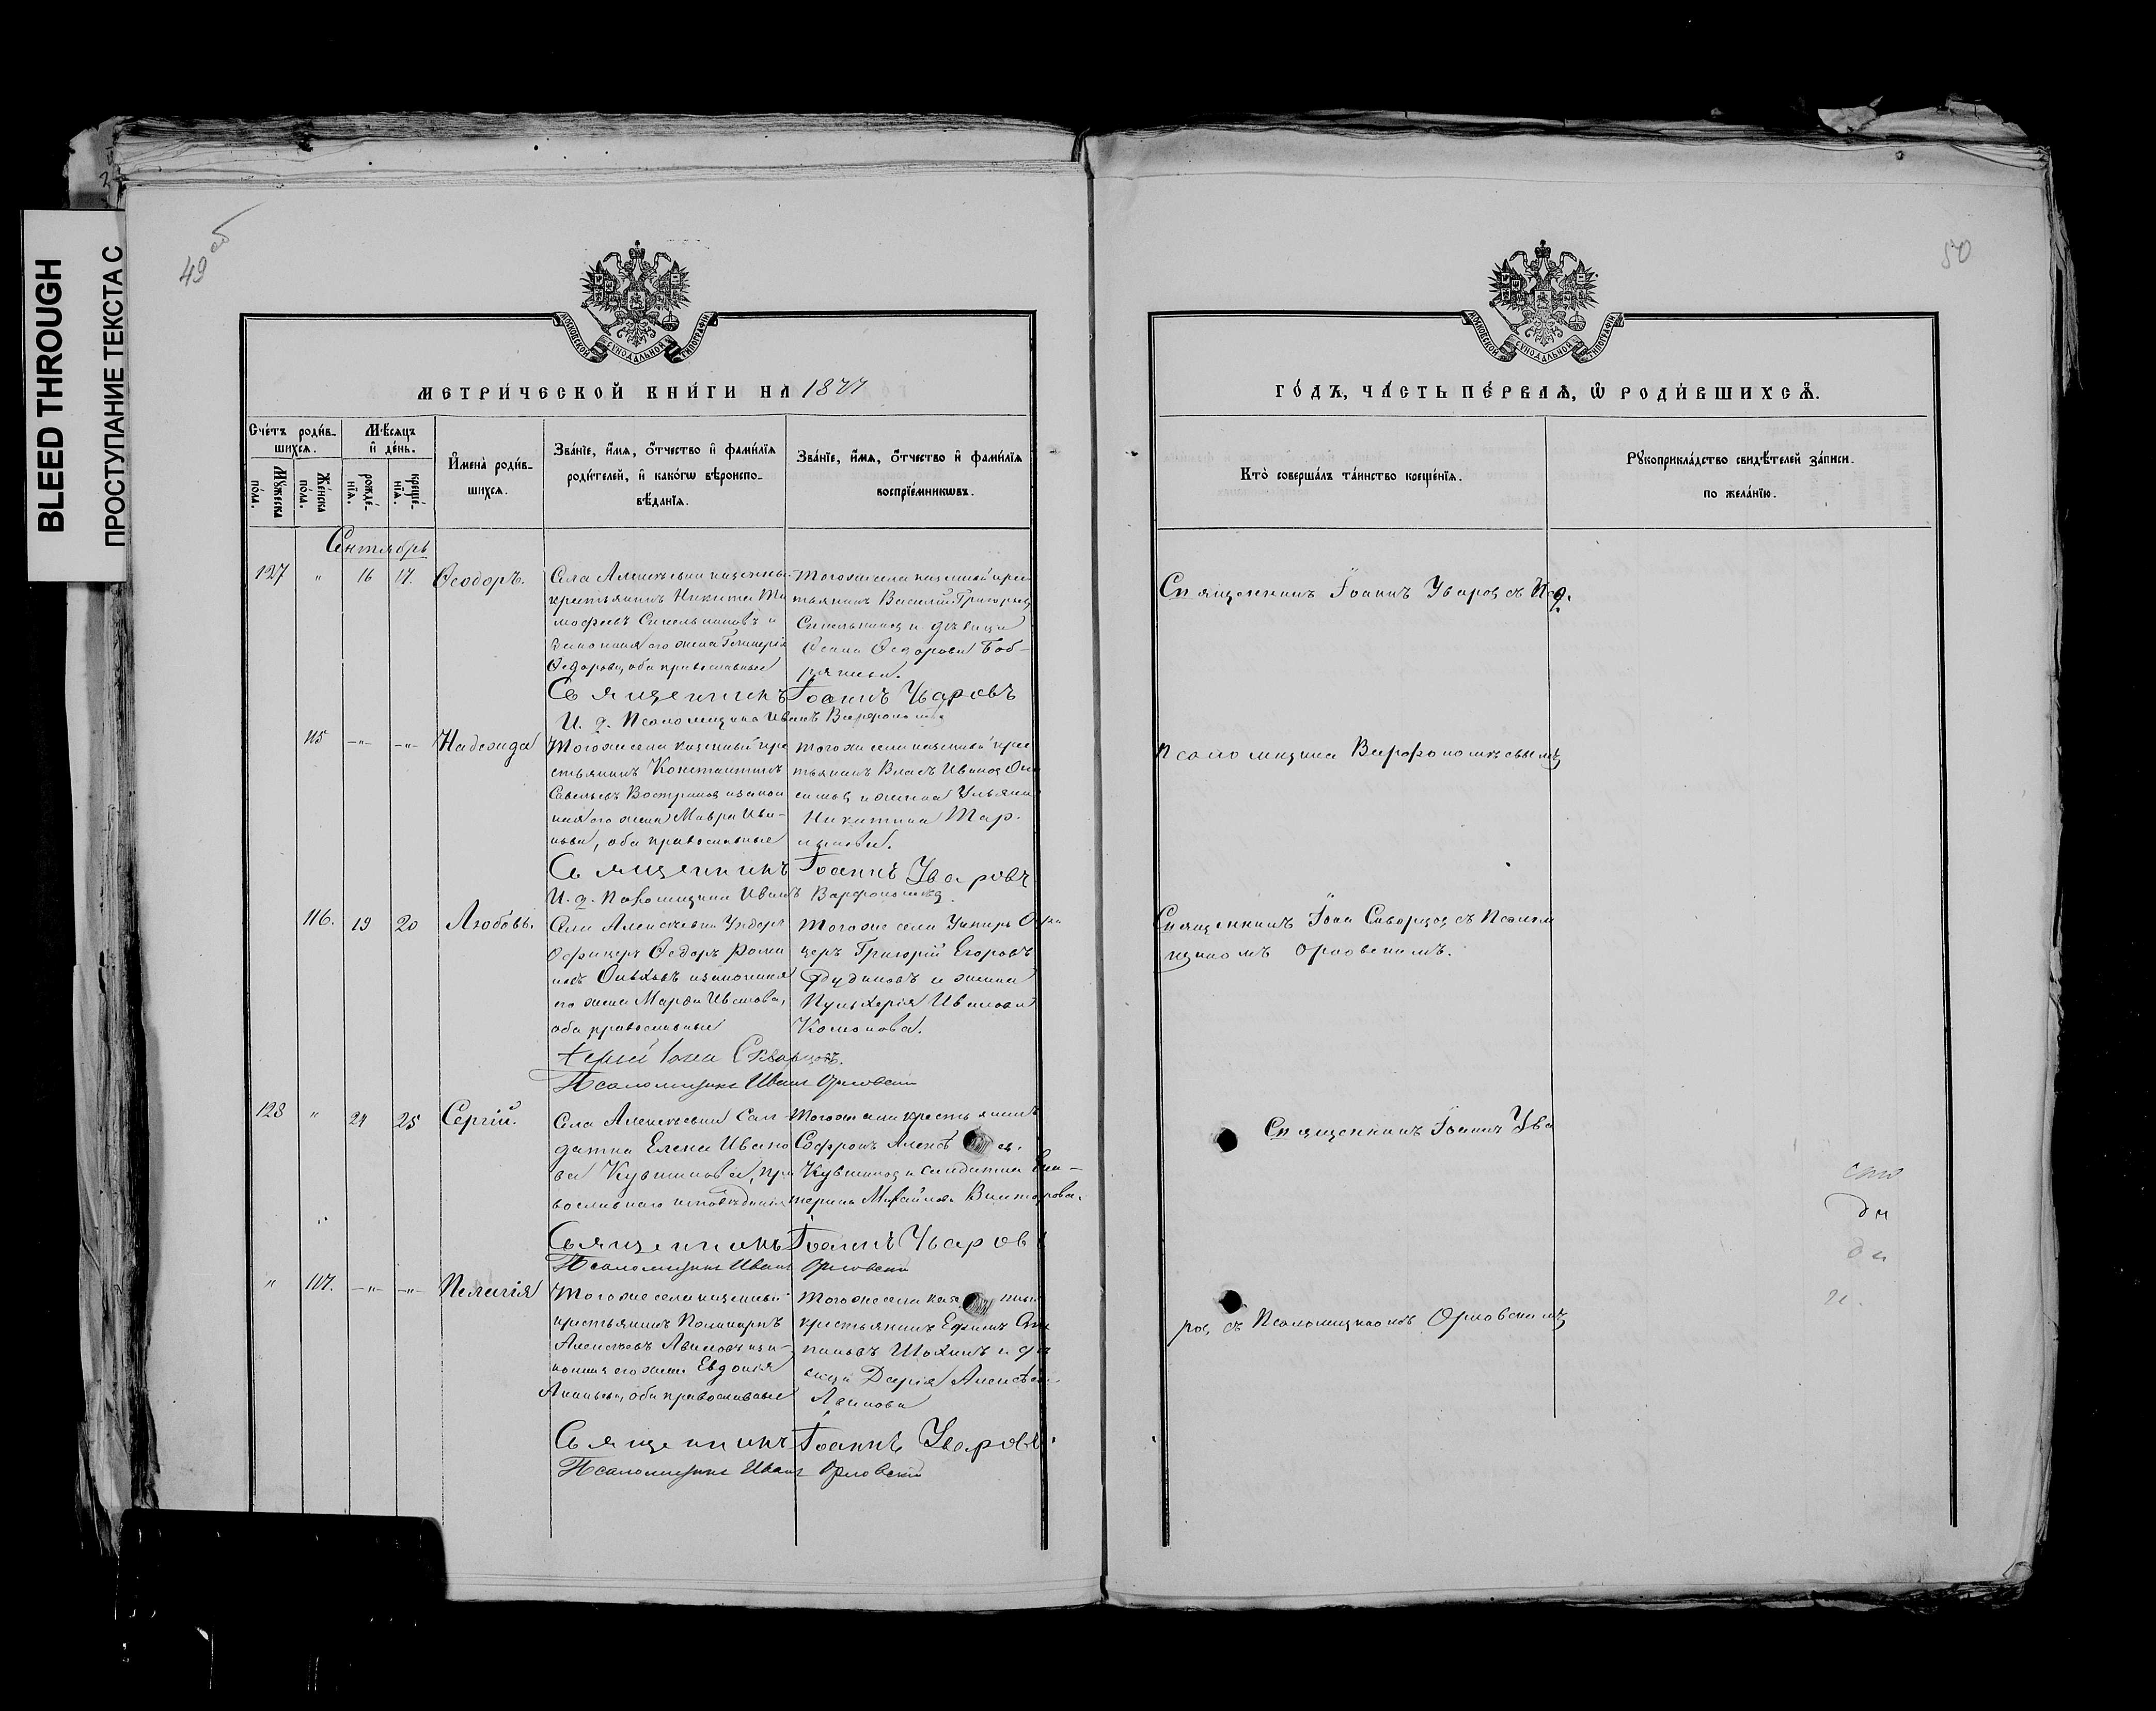 BLEED THROUGH
ПРОСТУПАНИЕ ТЕКСТА С
49 об
50
МОСКОВСКОЙ СѴНОДАЛЬНОЙ ТИПОГРАФІИ
МЕТРИ́ЧЕСКОЙ КНИ́ГИ НА 1877
Сче́тъ роди́в-
шихсѧ.
Мѣ́сѧцъ
и҆ де́нь.
Мꙋ́жеска
по́ла.
Же́нска
по́ла.
рожде́-
нїѧ.
креще́-
нїѧ.
И҆мена̀ роди́в-
шихсѧ.
Зва́нїе, и҆́мѧ, ѻ҆́тчество и҆ фами́лїѧ
роди́телей, и҆ како́гѡ вѣроиспо-
вѣ́данїѧ.
Зва́нїе, и҆́мѧ, ѻ҆́тчество и҆ фами́лїѧ
воспрїе́мникѡвъ.
Сентябрь
127 " 16 17. Ѳеодоръ.
Села Алексѣевки казенный
крестьянинъ Никита Ти
мофеевъ Синельниковъ и
законная его жена Гликерія
Ѳедорова, оба православные
Того же села казенный крес-
тьянинъ Василій Григорьев
Синельников и дѣвица
Ѳедорова Боб-
Священникъ Іоаннъ Уваровъ
И. д. Псаломщика Иванъ Варфоломѣев
115 -"- -"- Надежда
Того же села казенный кре
стьянинъ Константинъ
Савельевъ Востриков и закон
ная его жена Мавра Ива-
нова, оба православные
Того же села казенный крес
тьянинъ Власъ Иванов
и жена Ульяна
Никитина Мар-
Священникъ Іоаннъ Уваровъ
И. д. Псаломщика Иванъ Варфоломѣев
116. 19 20 Любовь.
Села Алексѣевки Ундеръ
Офицеръ Ѳедоръ Рома
новъ и законная
его жена Марфа Иванова,
оба православные
Того же села Унтеръ Офи
церъ Григорій Егоровъ
и жена
Пульхерія Иванова
Іерей Іона Скворцовъ.
Псаломщикъ Иванъ Орловскій
128 " 24 25 Сергій.
Села Алексѣевки Сол
датка Елена Ивано
ва Кувшинова, пра
вославнаго исповѣданія
Того же села крестьянинъ
Софронъ Алексѣев.
Кувшинов и солдатка Ека-
терина Михайлова Викторова.
Священникъ Іоаннъ Уваровъ
Псаломщикъ Иванъ Орловскій
" 117. -"- -"- Пелагія
Того же села казенный
крестьянинъ Поликарпъ
Алексѣевъ и за-
конная его жена Евдокія
Ананьева, оба православные
Того же села казенный
крестьянинъ Ефимъ
Шохинъ и дѣ
вица Дарія Алексѣева
Священникъ Іоаннъ Уваровъ
Псаломщикъ Иванъ Орловскій
МОСКОВСКОЙ СѴНОДАЛЬНОЙ ТИПОГРАФІИ
ГО́ДЪ, ЧА́СТЬ ПЕ́РВАѦ, Ѡ҆ РОДИ́ВШИХСѦ.
Кто̀ соверша́лъ та́инство креще́нїѧ.
Рꙋкоприкла́дство свидѣ́телей за́писи.
по жела́нїю.
Священникъ Іоаннъ Уваров съ И. д.
псаломщика Варфоломѣевымъ
Священникъ Іона Скворцов съ Псалом
щикомъ Орловскимъ.
Священникъ Іоаннъ Ува
ров съ Псаломщикомъ Орловскимъ